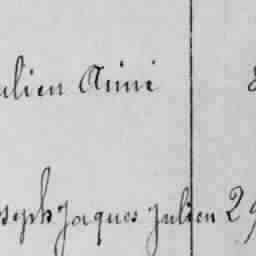 ulien Aimé
oseph Jaques Julien 29